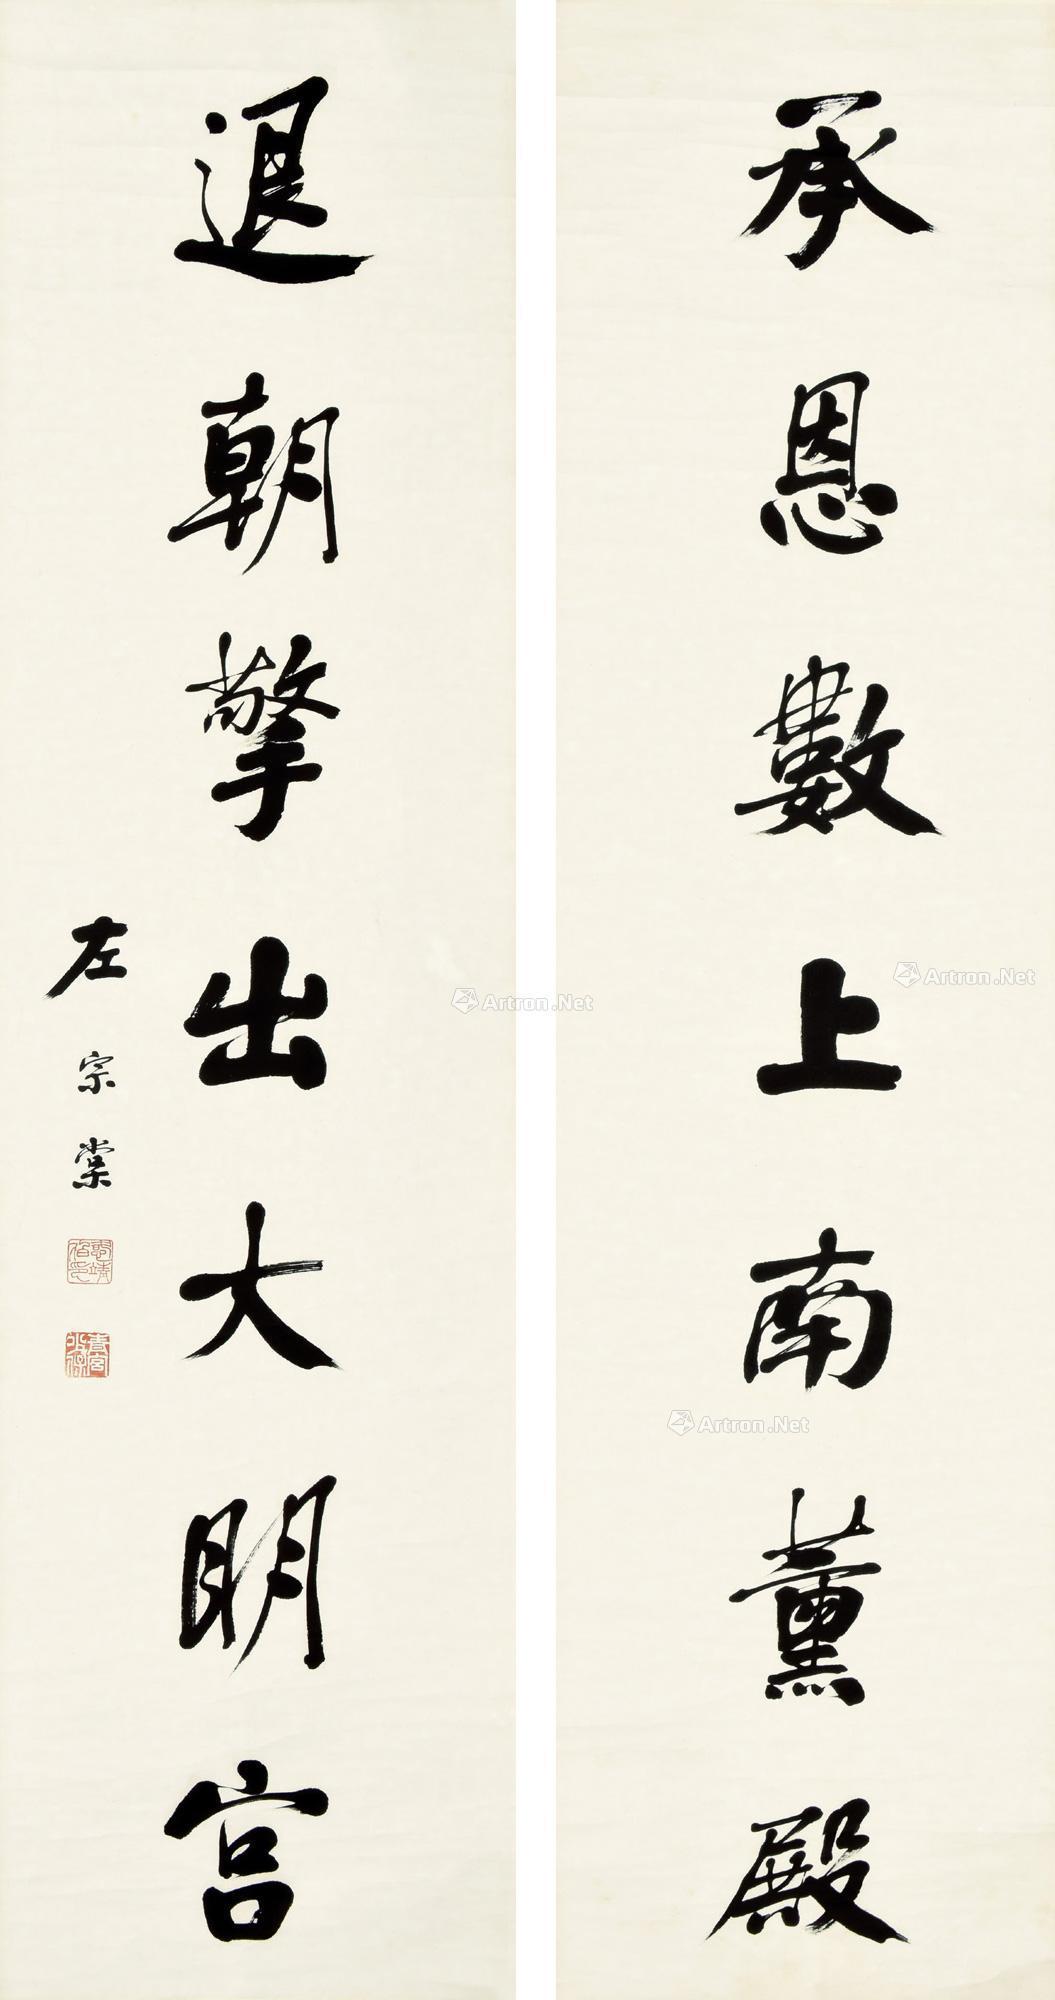 承恩數上南薰殿
退朝擎出大明宮
左宗棠
恪靖侯印
青宮太保
Artron.Net
Artron.Net
Artron.Net